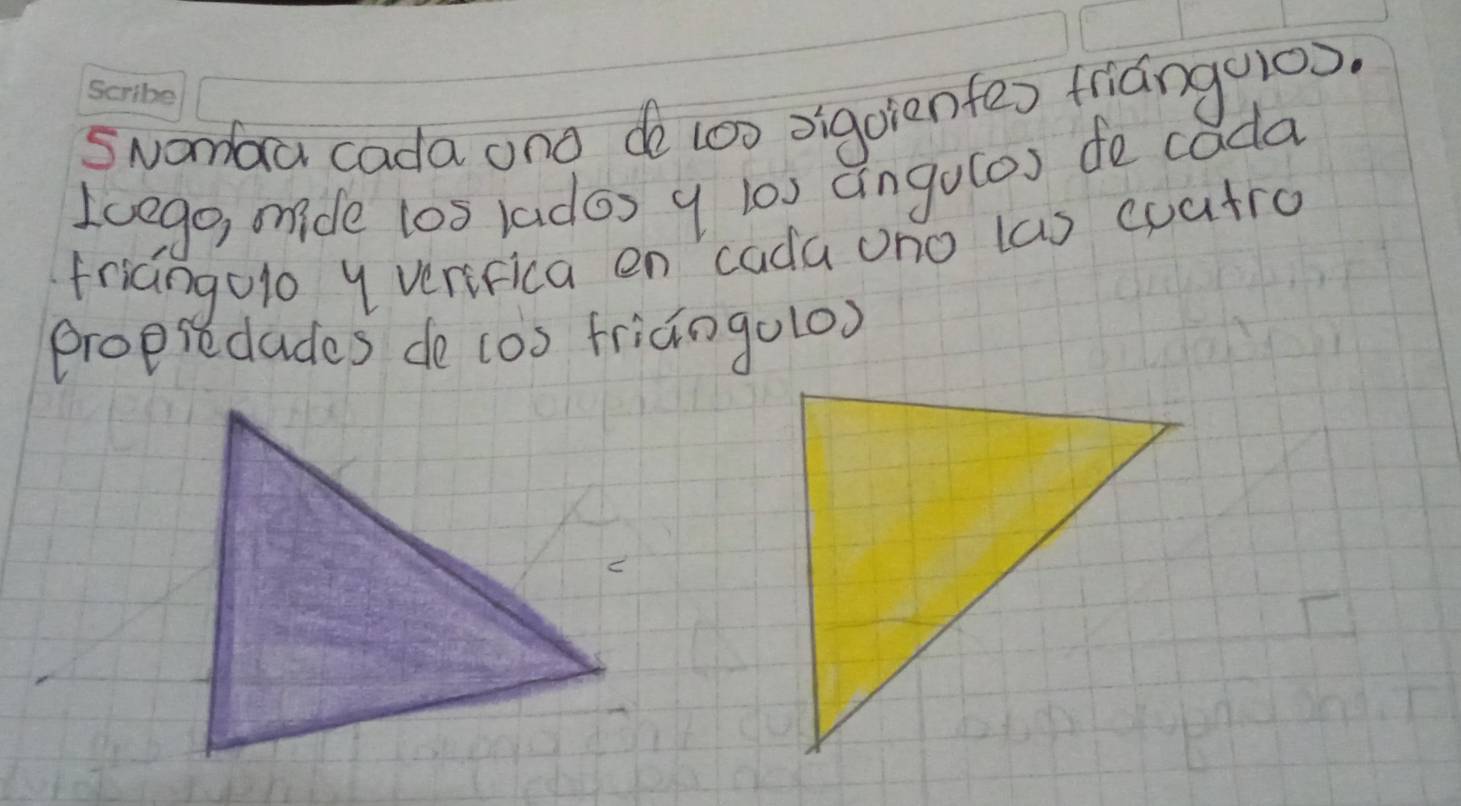 Scribe
5 Nombra cada uno de los siguientes triángulos.
Luego, mide los lados y los ángulos de cada
triángulo y verifica en cada uno las cuatro
propiedades de los triángulos